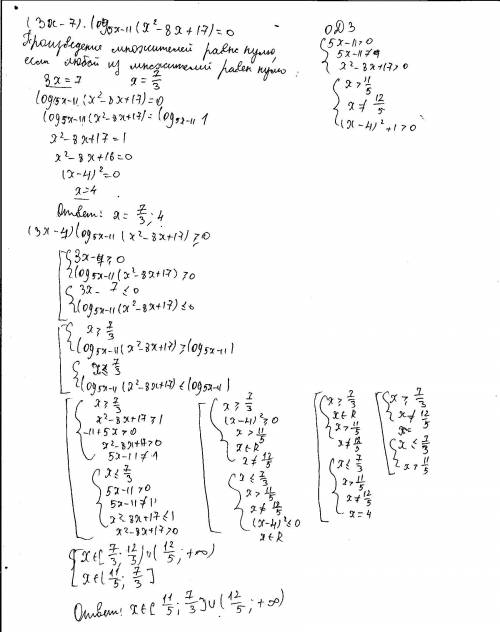 (3x-7)·log₅ₓ₋₁₁(x²-8x+17)=0
ОДЗ
Произведение множителей равно нулю,
если любой из множителей равен нулю:
{ 5x-11>0
5x-11≠1
x²-8x+17>0
{ x>11/5
x≠12/5
(x-4)²+1>0
3x=7 x=7/3
log₅ₓ₋₁₁(x²-8x+17)=0
log₅ₓ₋₁₁(x²-8x+17)=log₅ₓ₋₁₁1
x²-8x+17=1
x²-8x+16=0
(x-4)²=0
x=4
Ответ: x=7/3; 4
(3x-7)log₅ₓ₋₁₁(x²-8x+17)≥0
[ { 3x-7≥0
log₅ₓ₋₁₁(x²-8x+17)≥0
{ 3x-7≤0
log₅ₓ₋₁₁(x²-8x+17)≤0
[ { x≥7/3
log₅ₓ₋₁₁(x²-8x+17)≥log₅ₓ₋₁₁1
{ x≤7/3
log₅ₓ₋₁₁(x²-8x+17)≤log₅ₓ₋₁₁1
[ { x≥7/3
x²-8x+17≥1
-11+5x>0
x²-8x+17>0
5x-11≠1
{ x≤7/3
5x-11>0
5x-11≠1
x²-8x+17≤1
x²-8x+17>0
[ { x≥7/3
(x-4)²≥0
x>11/5
x∈R
x≠12/5
{ x≤7/3
x>11/5
x≠12/5
(x-4)²≤0
x∈R
[ { x≥7/3
x∈R
x>11/5
x≠12/5
{ x≤7/3
x>11/5
x≠12/5
x=4
[ { x≥7/3
x≠12/5
{ x≤7/3
x>11/5
[ x∈[7/3; 12/5)∪(12/5; +∞)
x∈(11/5; 7/3]
Ответ: x∈[11/5; 7/3]∪(12/5; +∞)